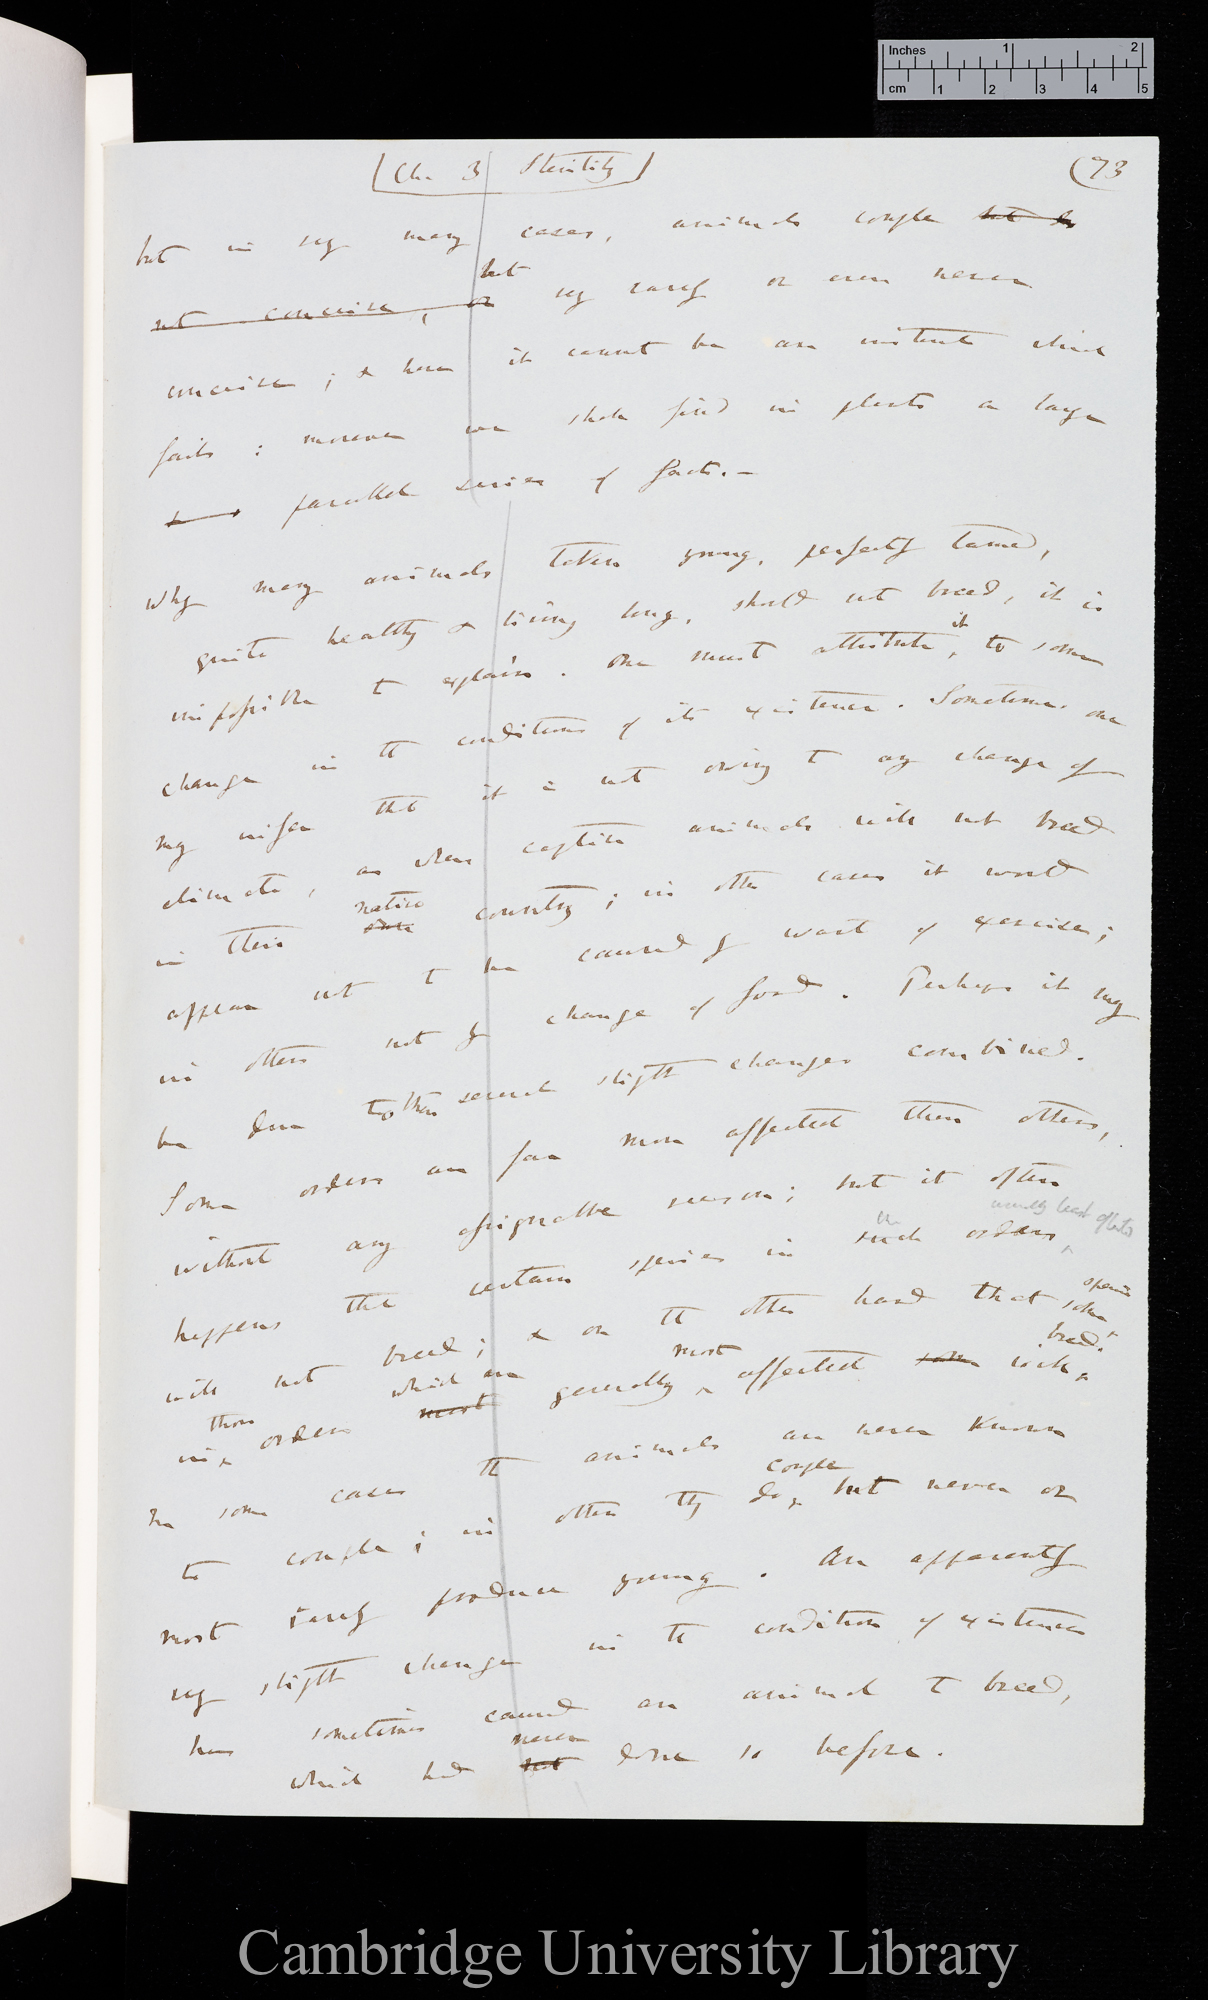 Inches 1 2
cm 1 2 3 4 5
(Ch. 3 Sterility)
(73
but in very many cases, animals couple but do
not conceive, or but very rarely or even never
conceive; & here it cannot be an instinct which
fails: moreover we shall find in plants a large
& parallel series of facts.—
Why many animals taken young, perfectly tamed,
quite healthy & living long, should not breed, it is
impossible to explain. One must attribute it, to some
change in the conditions of its existence. Sometimes one
may infer that it is not owing to any change of
climate, as when captive animals will not breed
in their own native country; in other cases it would
appear not to be caused by want of exercise;
in others not by change of food. Perhaps it may
be due to several slight changes combined.
Some orders are far more affected than others,
without any assignable reason; but it often
happens that certain species in such orders usually least affected
will not breed; & on the other hand that some species
in those orders most which are generally most affected some will breed.
In some cases the animals are never known
to couple; in others they do couple but never or
most rarely produce young. An apparently
very slight change in the condition of existence
has sometimes caused an animal to breed,
which had not never done so before.
Cambridge University Library